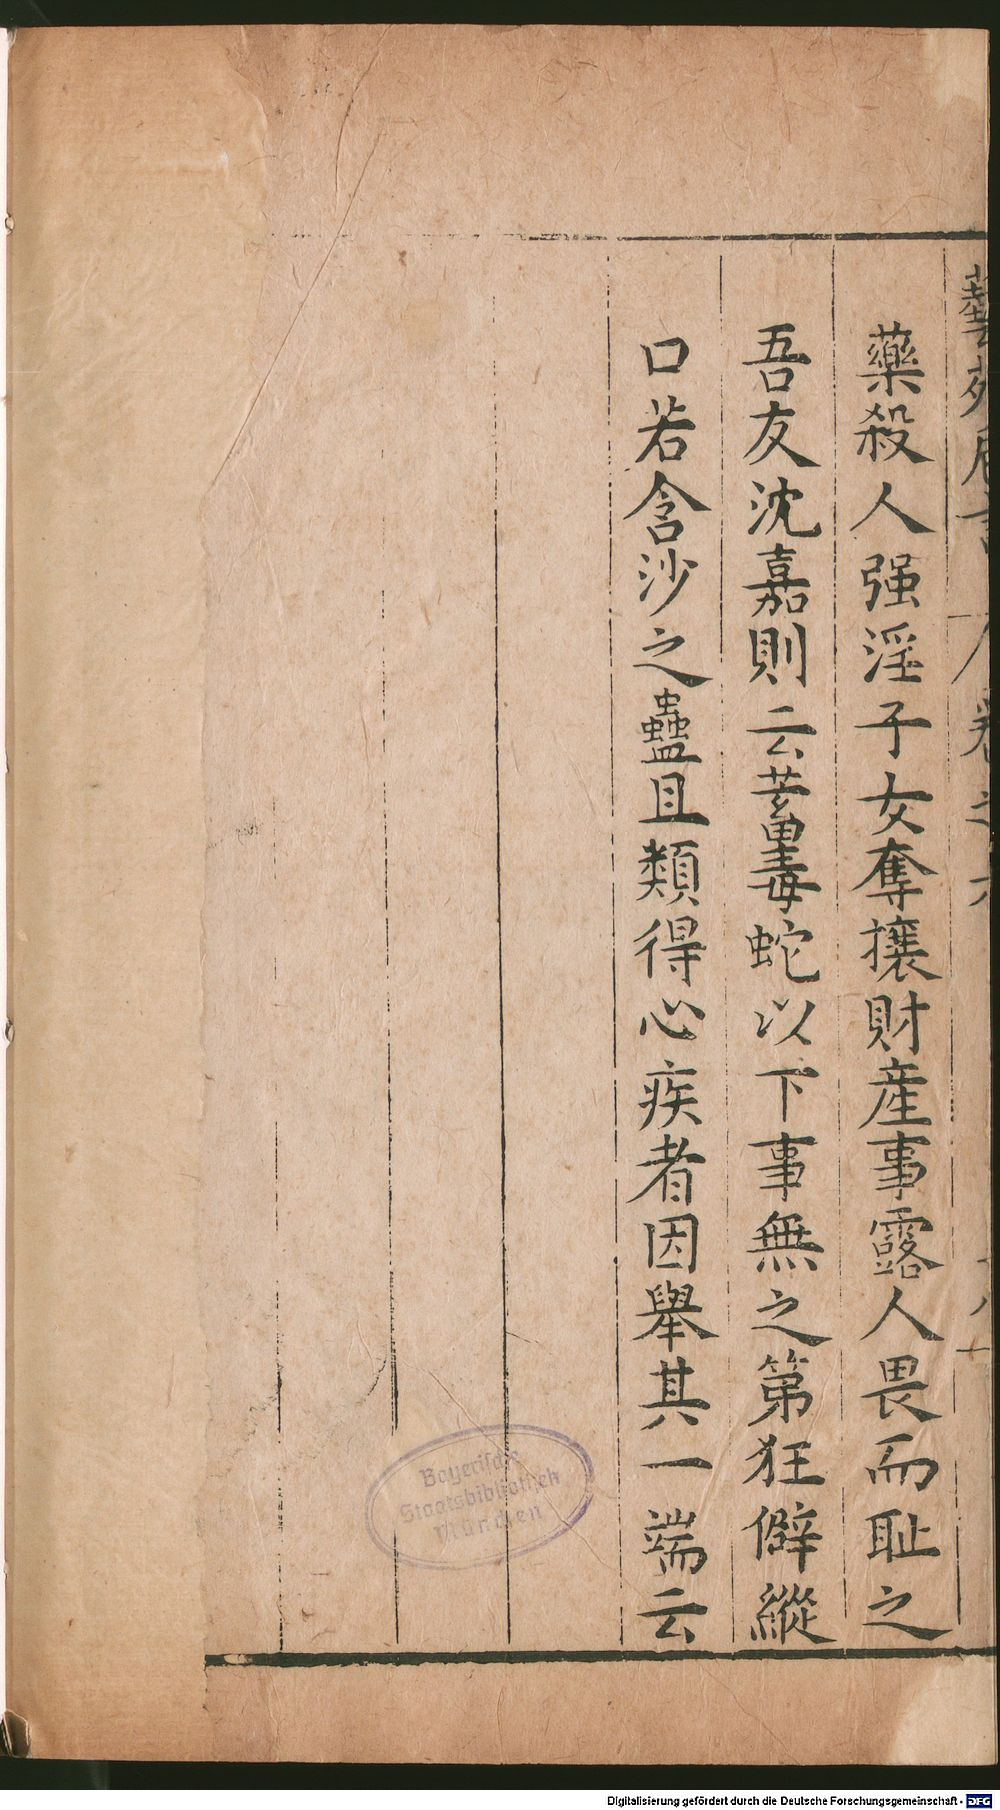 藝苑卮言 卷之六 十八
藥殺人强淫子女奪攘財産事露人畏而恥之
吾友沈嘉則云蓄毒蛇以下事無之第狂僻縱
口若含沙之蠱且類得心疾者因舉其一端云
Bayerische
Staatsbibliothek
München
Digitalisierung gefördert durch die Deutsche Forschungsgemeinschaft - DFG